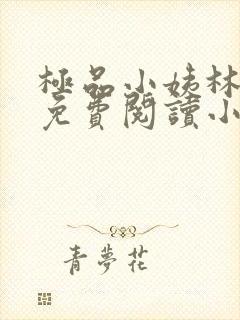 極品小姨林
免費閱讀小
青夢花